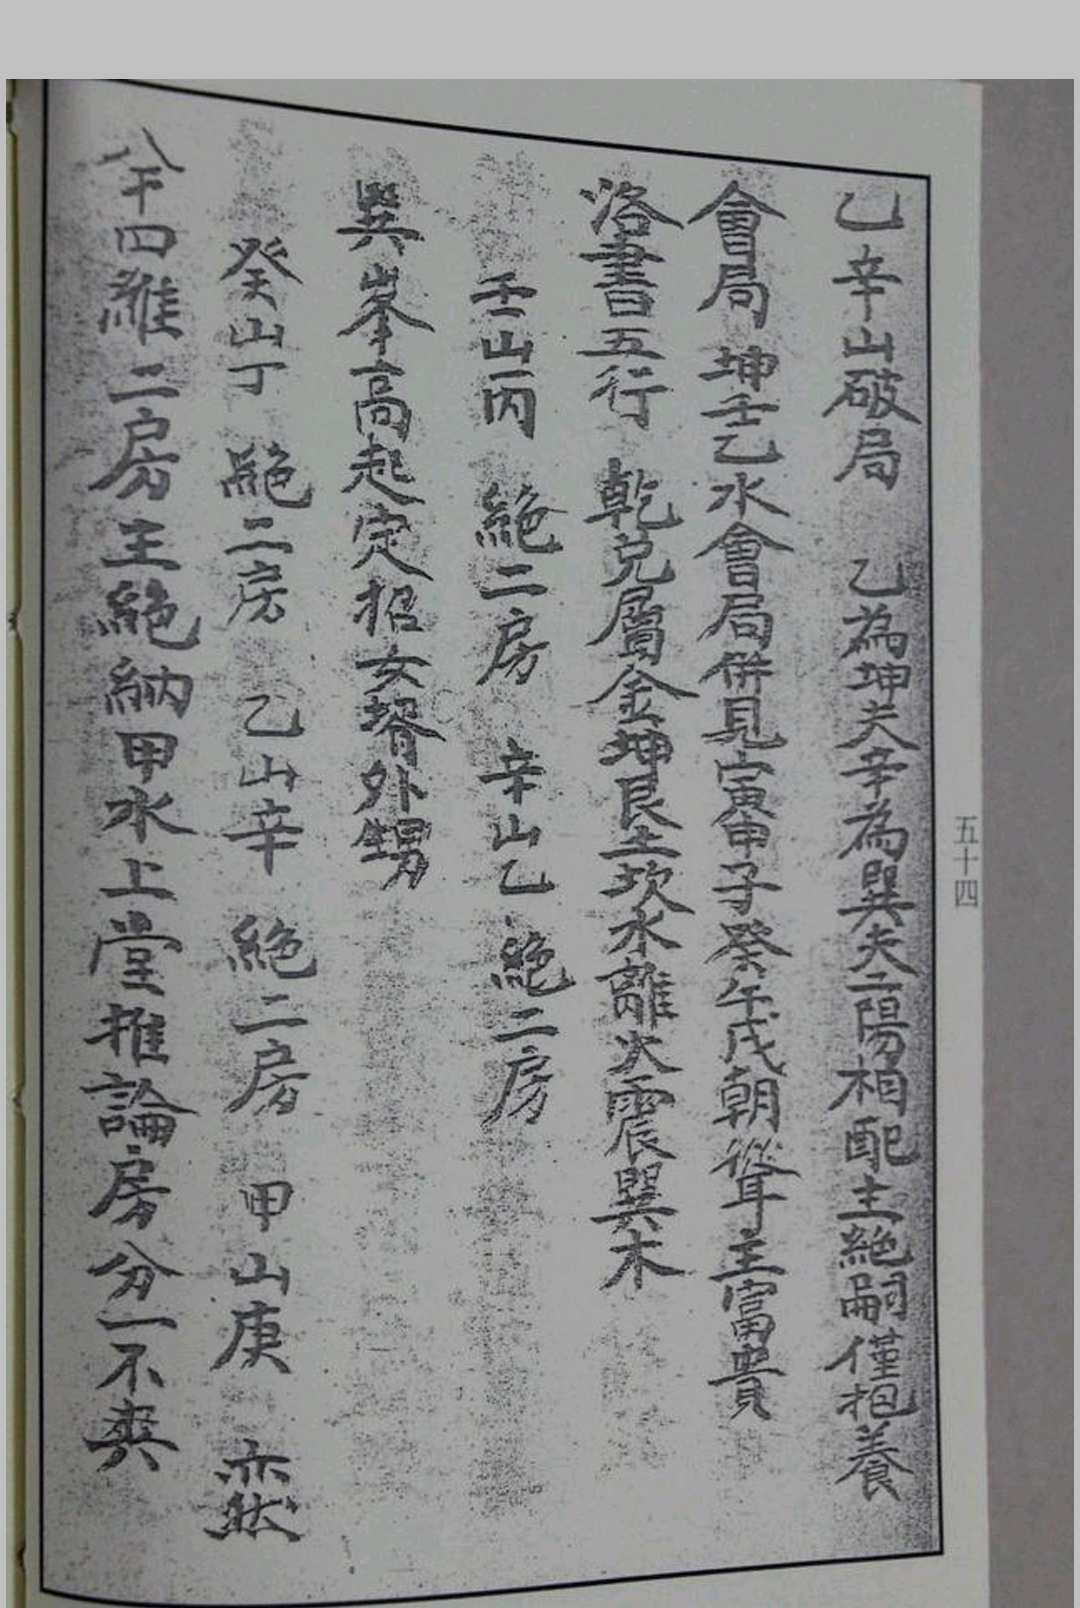 乙辛山破局　乙為坤夫辛為巽夫二陽相配主絕嗣僅抱養
會局　坤壬乙水會局併見寅申子癸午戌朝聳主富貴
洛書五行　乾兌屬金坤艮土坎水離火震巽木
壬山丙　絕二房　辛山乙　絕二房
巽峯高起定招女壻外甥
癸山丁　絕二房　乙山辛　絕二房　甲山庚　亦然
羊四維二房主絕納甲水上堂推論房分一不爽
五十四